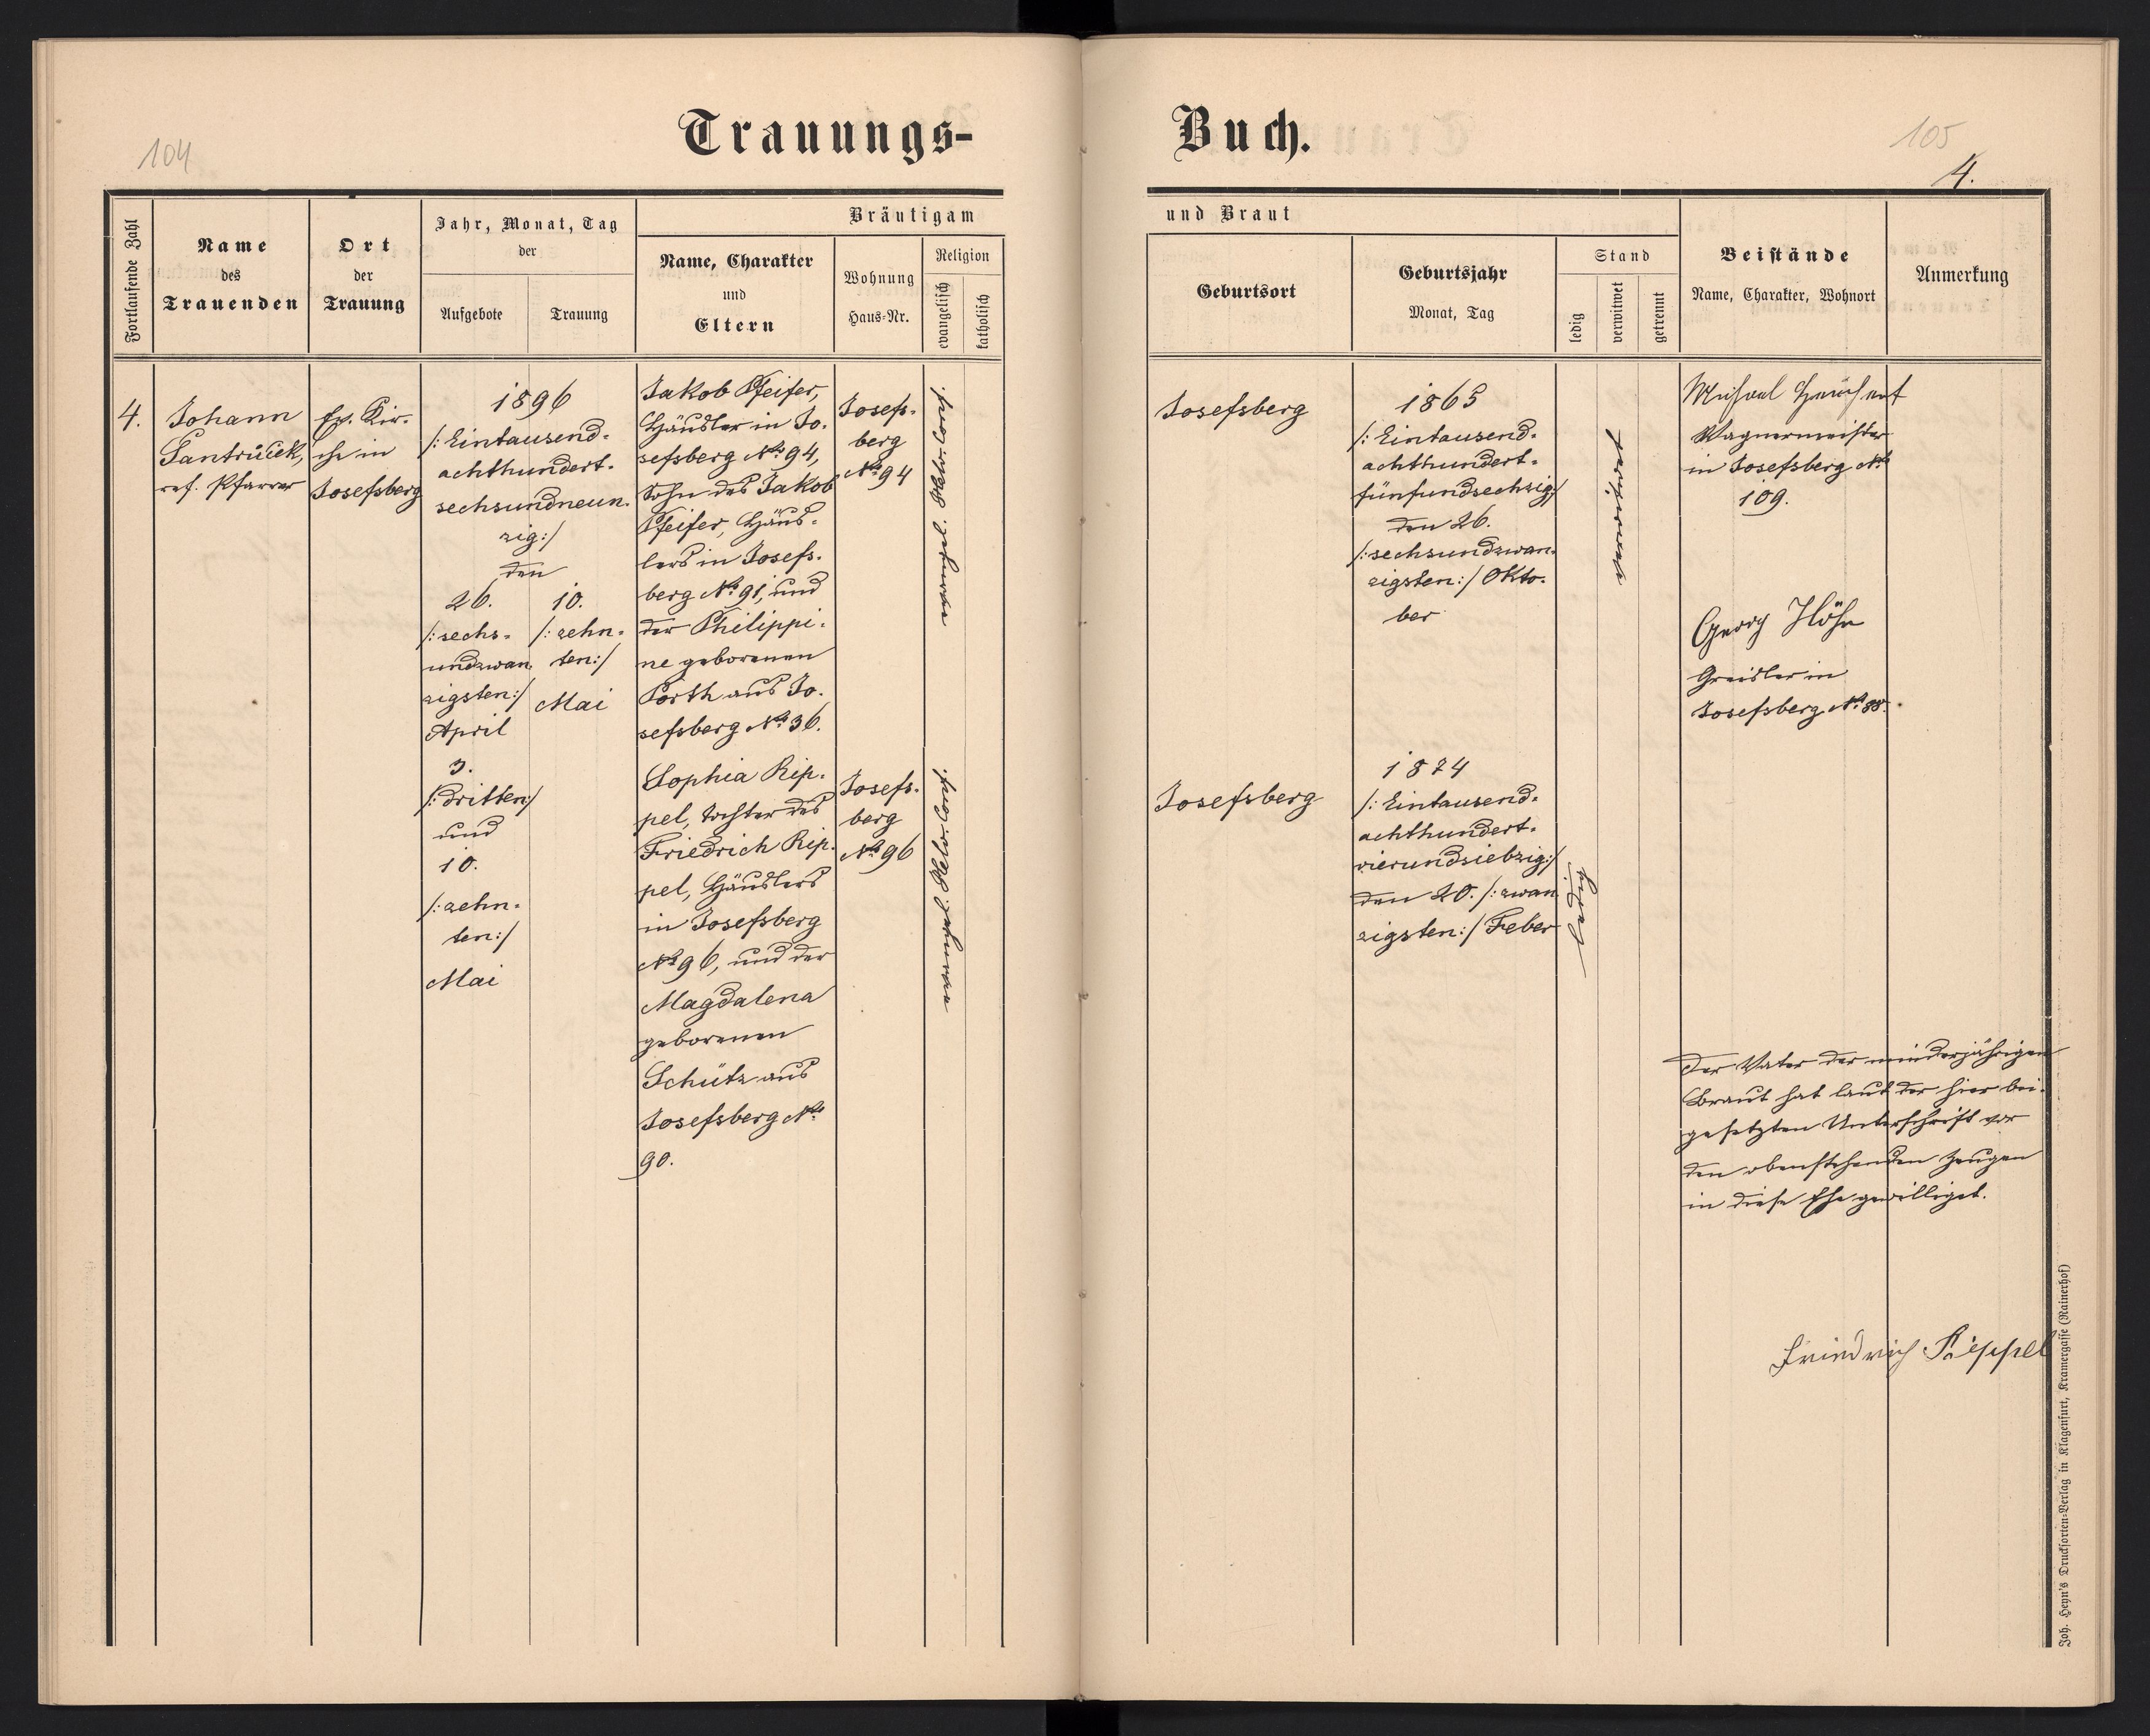 104
Trauungs-
Fortlaufende Zahl
Name
des
Trauenden
Ort
der
Trauung
Jahr, Monat, Tag
der
Aufgebote
Trauung
Bräutigam
Name, Charakter
und
Eltern
Wohnung
Haus-Nr.
Religion
evangelisch
katholisch
4.
Johann
Santrůček,
ref. Pfarrer
Ev. Kir-
che in
Josefsberg
1896
/: Eintausend-
achthundert-
sechsundneun-
zig:/
den
26.
/: sechs-
undzwan-
zigsten:/
April
3.
/: dritten:/
und
10.
/: zehn-
ten:/
Mai
10.
/: zehn-
ten:/
Mai
Jakob Pfeifer,
Häusler in Jo-
sefsberg No 94,
Sohn des Jakob
Pfeifer, Häus-
lers in Josefs-
berg No 91, und
der Philippi-
ne geborenen
Porth aus Jo-
sefsberg No 36.
Josefs-
berg
No 94
evangel. helv. Conf.
Sophia Rip-
pel, Tochter des
Friedrich Rip-
pel, Häuslers
in Josefsberg
No 96, und der
Magdalena
geborenen
Schütz aus
Josefsberg No
90.
Josefs-
berg
No 96
evangel. helv. Conf.
Buch.
105
4.
und Braut
Geburtsort
Geburtsjahr
Monat, Tag
Stand
ledig
verwitwet
getrennt
Beistände
Name, Charakter, Wohnort
Anmerkung
Josefsberg
1865
/: Eintausend-
achthundert-
fünfundsechzig:/
den 26.
/: sechsundzwan-
zigsten:/ Okto-
ber
verwitwet
Michael
Wagnermeister
in Josefsberg No
109.
Georg Höhn
Greisler in
Josefsberg No 88.
Josefsberg
1874
/: Eintausend-
achthundert-
vierundsiebzig:/
den 20. /: zwan-
zigsten:/ Feber
ledig
Der Vater der minderjährigen
Braut hat laut der hier bei-
gesetzten Unterschrift vor
den obenstehenden Zeugen
in diese Ehe gewilliget.
Friedrich Rippel
Joh. Heyn's Drucksorten-Verlag in Klagenfurt, Kramergasse (Rainerhof)